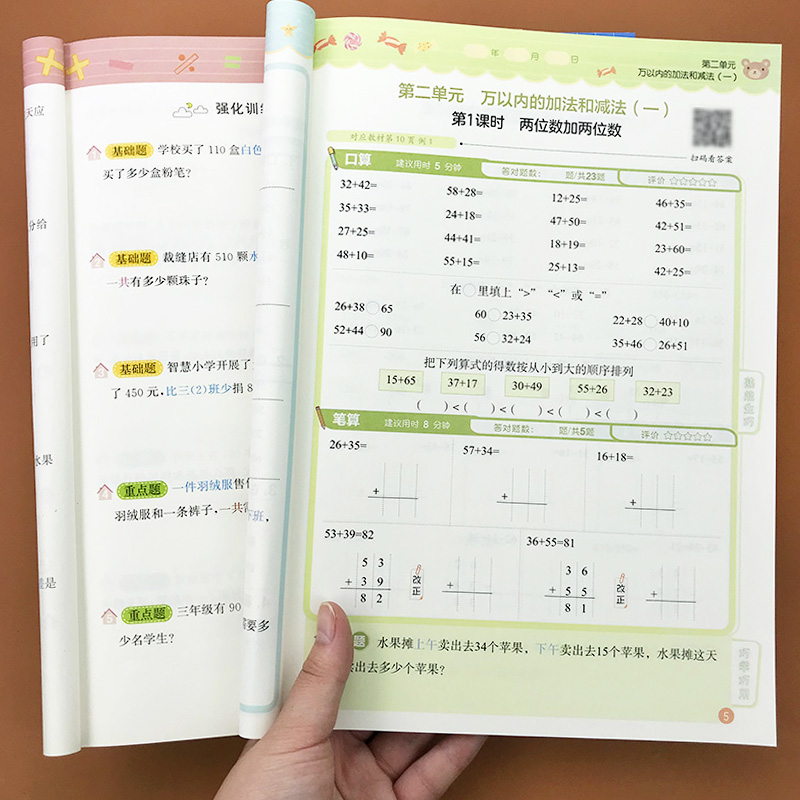 天应
分给
用了
水果
是
强化训练
基础题 学校买了 110 盒白色
买了多少盒粉笔?
基础题 裁缝店有 510 颗水
一共有多少颗珠子?
基础题 智慧小学开展了
了 450 元,比三(2)班少捐 8
重点题 一件羽绒服售
羽绒服和一条裤子,一共
重点题 三年级有 90
少名学生?
下班,
需要多
年 月 日
第二单元
万以内的加法和减法(一)
第二单元 万以内的加法和减法(一)
第1课时 两位数加两位数
对应教材第 10 页 例 1
扫码看答案
口算 建议用时 5 分钟 答对题数: 题/共23题 评价 ☆☆☆☆☆
32+42= 58+28= 12+25= 46+35=
35+33= 24+18= 47+50= 42+51=
27+25= 44+41= 18+19= 23+60=
48+10= 55+15= 25+13= 42+25=
在○里填上“>”“<”或“=”
26+38○65 60○23+35 22+28○40+10
52+44○90 56○32+24 35+46○26+51
把下列算式的得数按从小到大的顺序排列
15+65 37+17 30+49 55+26 32+23
( )<( )<( )<( )<( )
笔算 建议用时 8 分钟 答对题数: 题/共5题 评价 ☆☆☆☆☆
26+35= 57+34= 16+18=
+ + +
53+39=82 36+55=81
5 3 3 6
+ 3 9 改正 + + 5 5 改正 +
8 2 8 1
题 水果摊上午卖出去34个苹果,下午卖出去15个苹果,水果摊这天
卖出去多少个苹果?
5